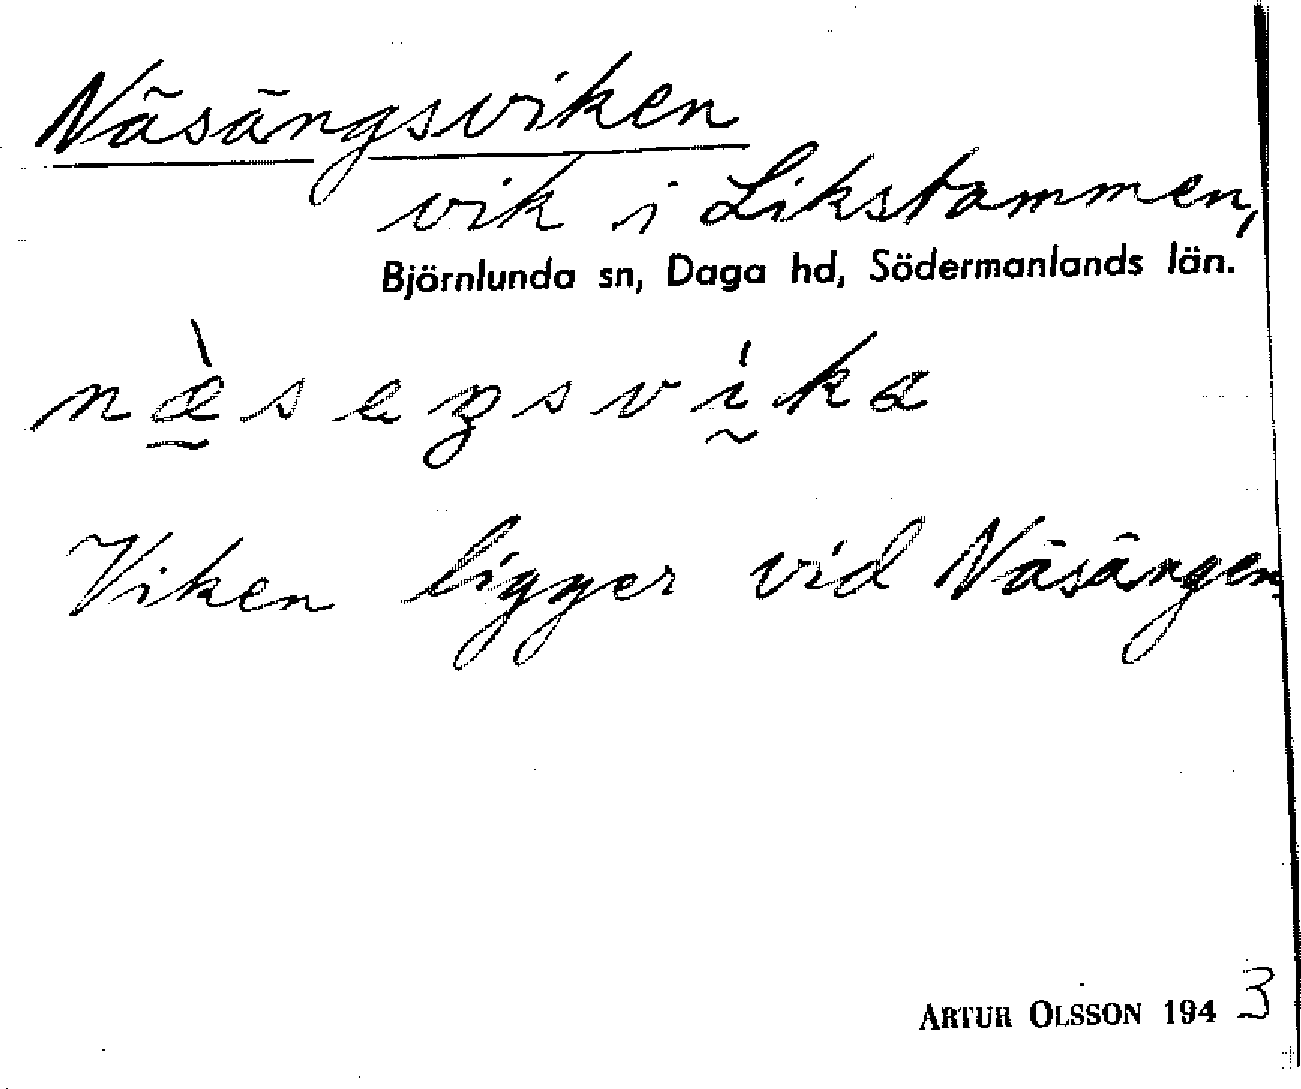 Näsängsviken
vik i Likstammen,
Björnlunda sn, Daga hd, Södermanlands län.
næ̀seŋsvíka
Viken ligger vid Näsängen.
ARTUR OLSSON 1943